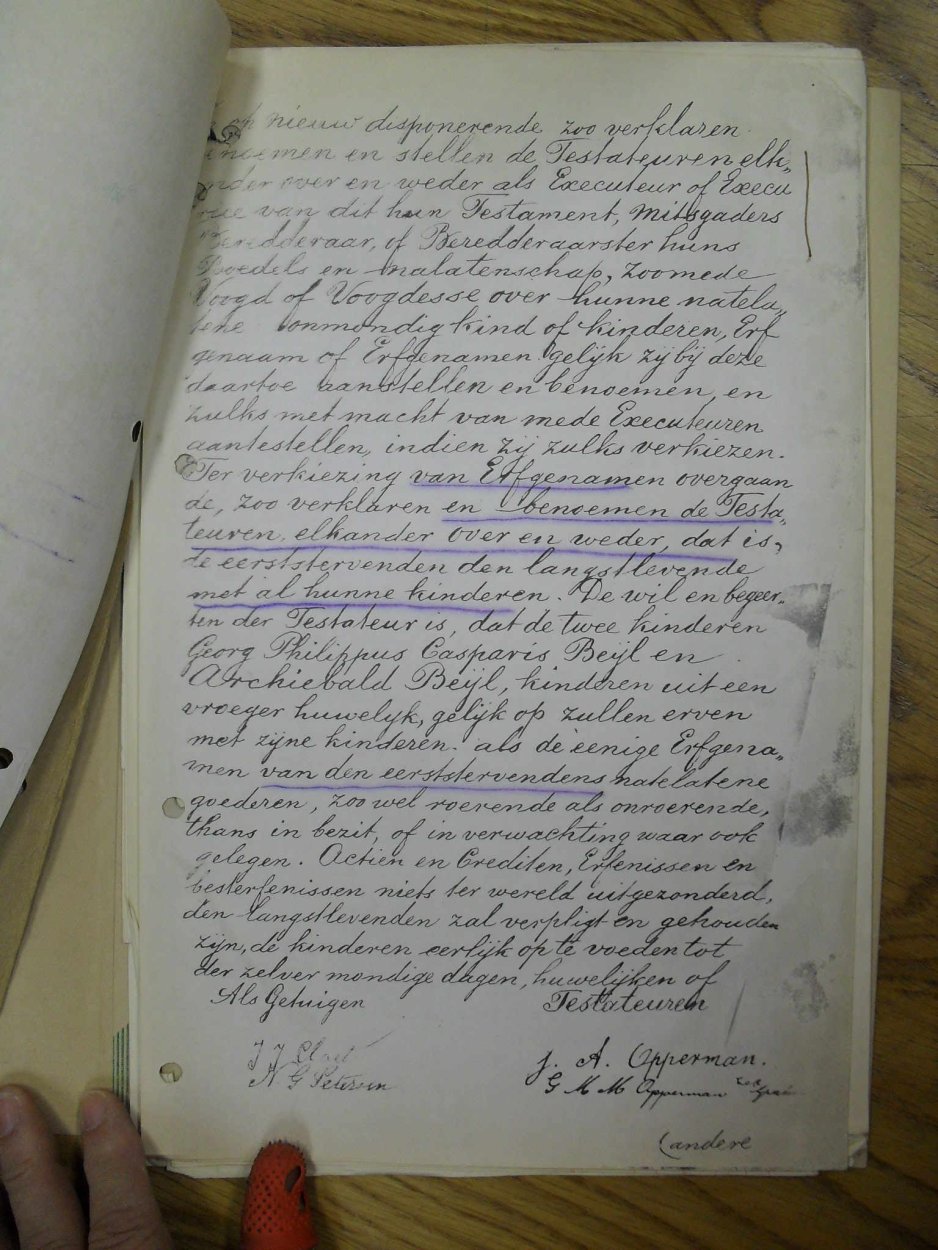 op nieuw disponerende zoo verklaren
benoemen en stellen de Testateuren elk„
ander over en weder als Executeur of Execu
rice van dit hun Testament, Mitsgaders
Beredderaar, of Beredderaarster huns
Boedels en nalatenschap, zoomede
Voogd of Voogdesse over hunne natela„
tene onmondig kind of kinderen, Erf
genaam of Erfgenamen gelijk zij bij deze
daartoe aanstellen en benoemen, en
zulks met macht van mede Executeuren
aantestellen, indien zij zulks verkiezen.
Ter verkiezing van Erfgenamen overgaan
de, zoo verklaren en benoemen de Testa„
teuren, elkander over en weder, dat is,
de eerststervenden den langstlevende
met al hunne kinderen. De wil en begeer„
ten der Testateur is, dat de twee kinderen
Georg Philippus Casparis Beijl en
Archiebald Beijl, kinderen uit een
vroeger huwelyk, gelijk op zullen erven
met zijne kinderen. als de eenige Erfgena„
men van den eerststervendens natelatene
goederen, zoo wel roerende als onroerende,
thans in bezit, of in verwachting waar ook
gelegen. Actien en Crediten, Erfenissen en
besterfenissen niets ter wereld uitgezonderd,
den langstlevenden zal verpligt en gehouden
zijn, de kinderen eerlijk op te voeden tot
der zelver mondige dagen, huwelijken of
Als Getuigen Testateuren
J J
N G J. A. Opperman.
G M M Opperman
(andere